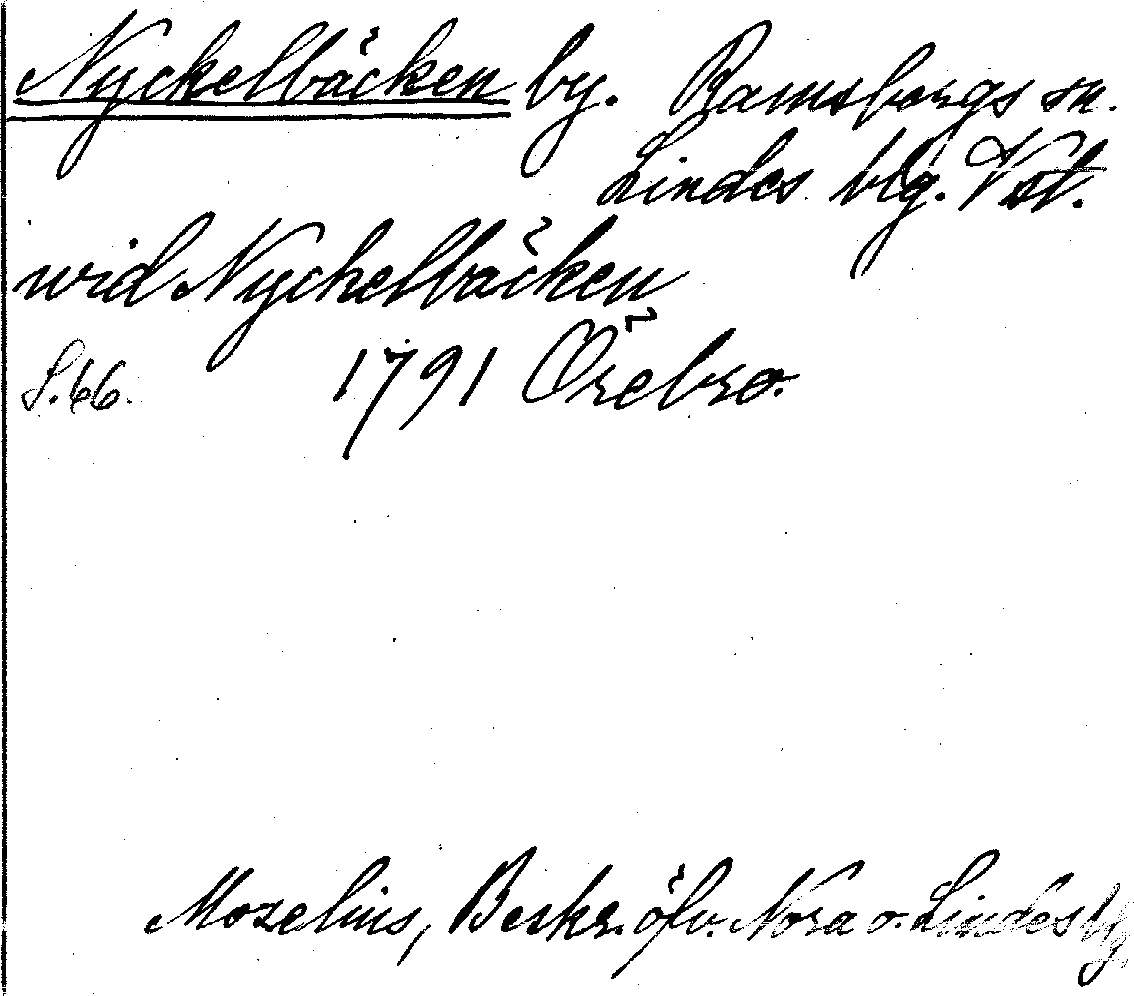 Nyckelbäcken by. Ramsbergs sn.
Lindes blg. Vstl.
wid Nyckelbäcken
S. 66. 1791 Örebro.
Mozelius, Beskr. öfv. Nora o. Lindes